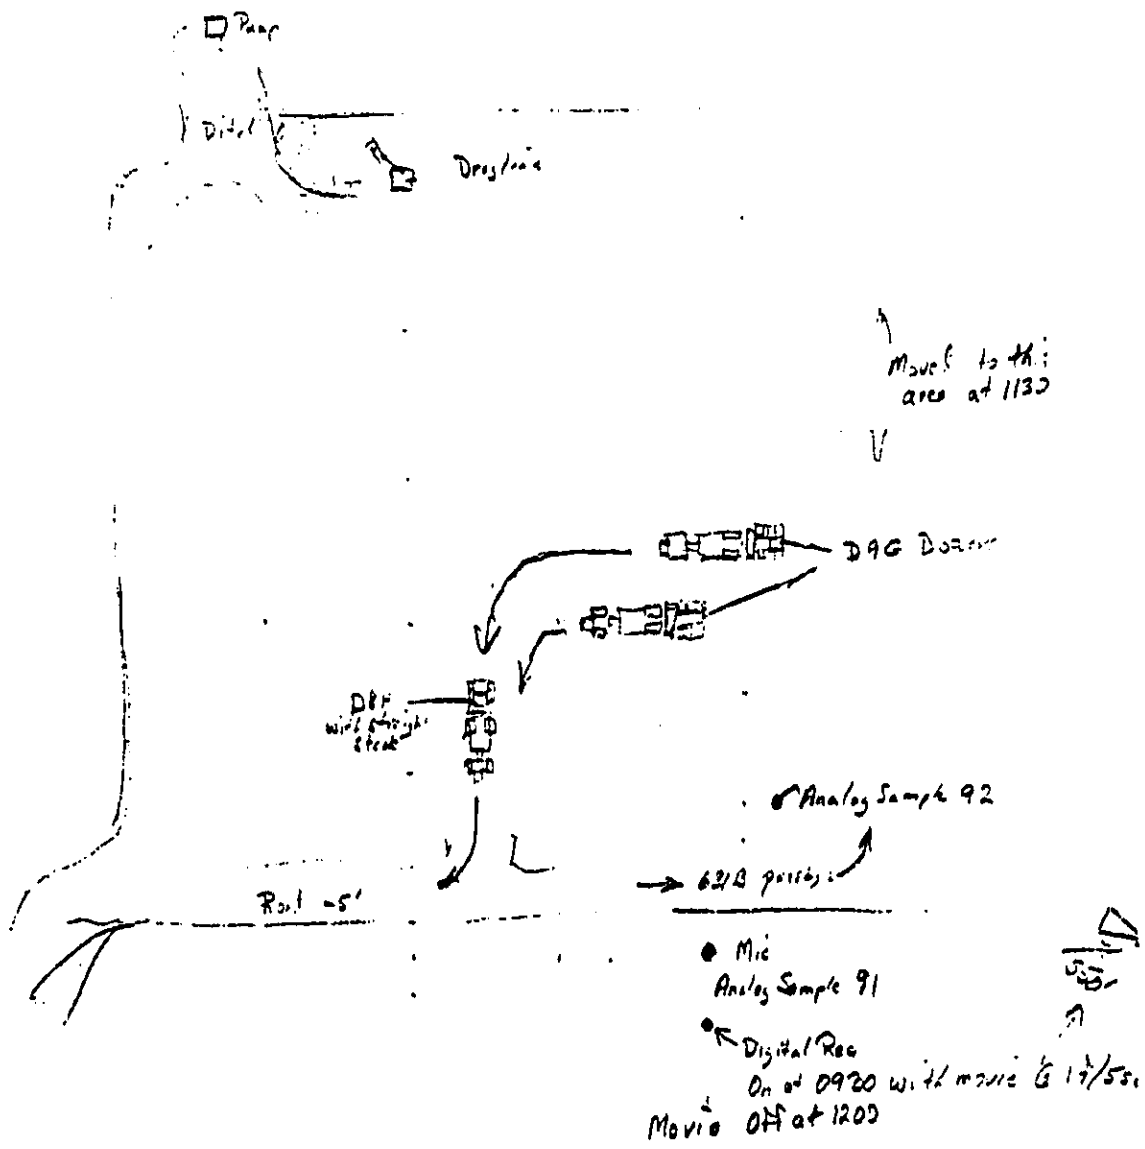 Pump
Dragline
Moves to this
area at 1130
D9G Dozers
D8H
with Straight
Analog Sample 92
621B passby
Road -5'
Mic
Analog Sample 91
Digital Rec
On at 0920 with movie
Movie Off at 1200